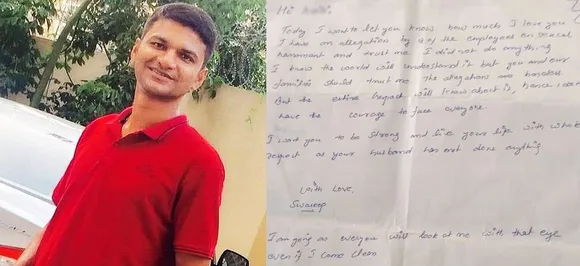 Hi
Today I want to let you know how much I love you
I have an allegation by 2 of the employees on sexual
harassment and trust me I did not do anything
I know the world will understand it but you and our
families should trust me. The allegations are baseless
But the entire will know about it, hence I don't
have the courage to face everyone.
I want you to be strong and live your life with whole
respect as your husband has not done anything
With Love,
Swaroop
I am going as everyone will look at me with that eye
even if I come clean